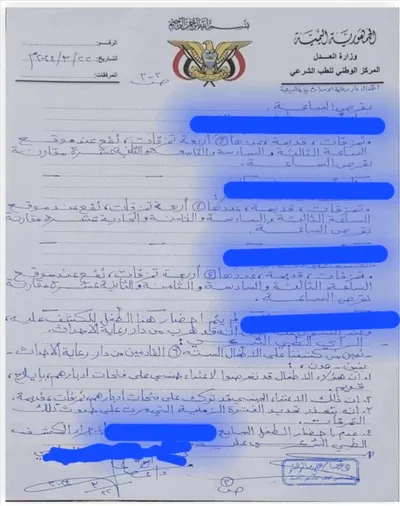 بسم الله الرحمن الرحيم
الجمهورية اليمنية
وزارة العدل
المركز الوطني للطب الشرعي
الرقم:
التاريخ: ٢٢/٣/٢٠٢٤م
المرفقات:
ص ٢-٢
بقرص الساعة.
وتمزقات، قديمة، عددها ④ أربعة تمزقات، تقع عند موقع
الساعة الثالثة والسادسة والتاسعة والثانية عشرة مقارنة
بقرص الساعة.
وتمزقات، قديمة، عددها ④ أربعة تمزقات، تقع عند موقع
الساعة الثالثة والسادسة والثامنة والحادية عشرة مقارنة
بقرص الساعة.
وتمزقات، قديمة، عددها ④ أربعة تمزقات، تقع عند موقع
الساعة الثالثة والسادسة والثامنة والثانية عشرة مقارنة
بقرص الساعة.
لم يتم إحضار هذا الطفل للكشف عليه،
قد هرب من دار رعاية الأحداث.
الرأي الطبي الشرعي:
تبين من كشفنا على الأطفال الستة ⑥ القادمين من دار رعاية الأحداث -
عدن:
١. أن هؤلاء الأطفال قد تعرضوا لاعتداء جنسي على فتحات أدبارهم، بإيلاج
٢. أن ذلك الاعتداء الجنسي قد ترك على فتحات أدبارهم، تمزقات، قديمة.
٣. أنه يتعذر تحديد الفترة الزمنية التي مرت على حدوث تلك
التمزقات.
٤. عدم إحضار الطفل السابع
لإجراء الكشف
الطبي الشرعي عليه